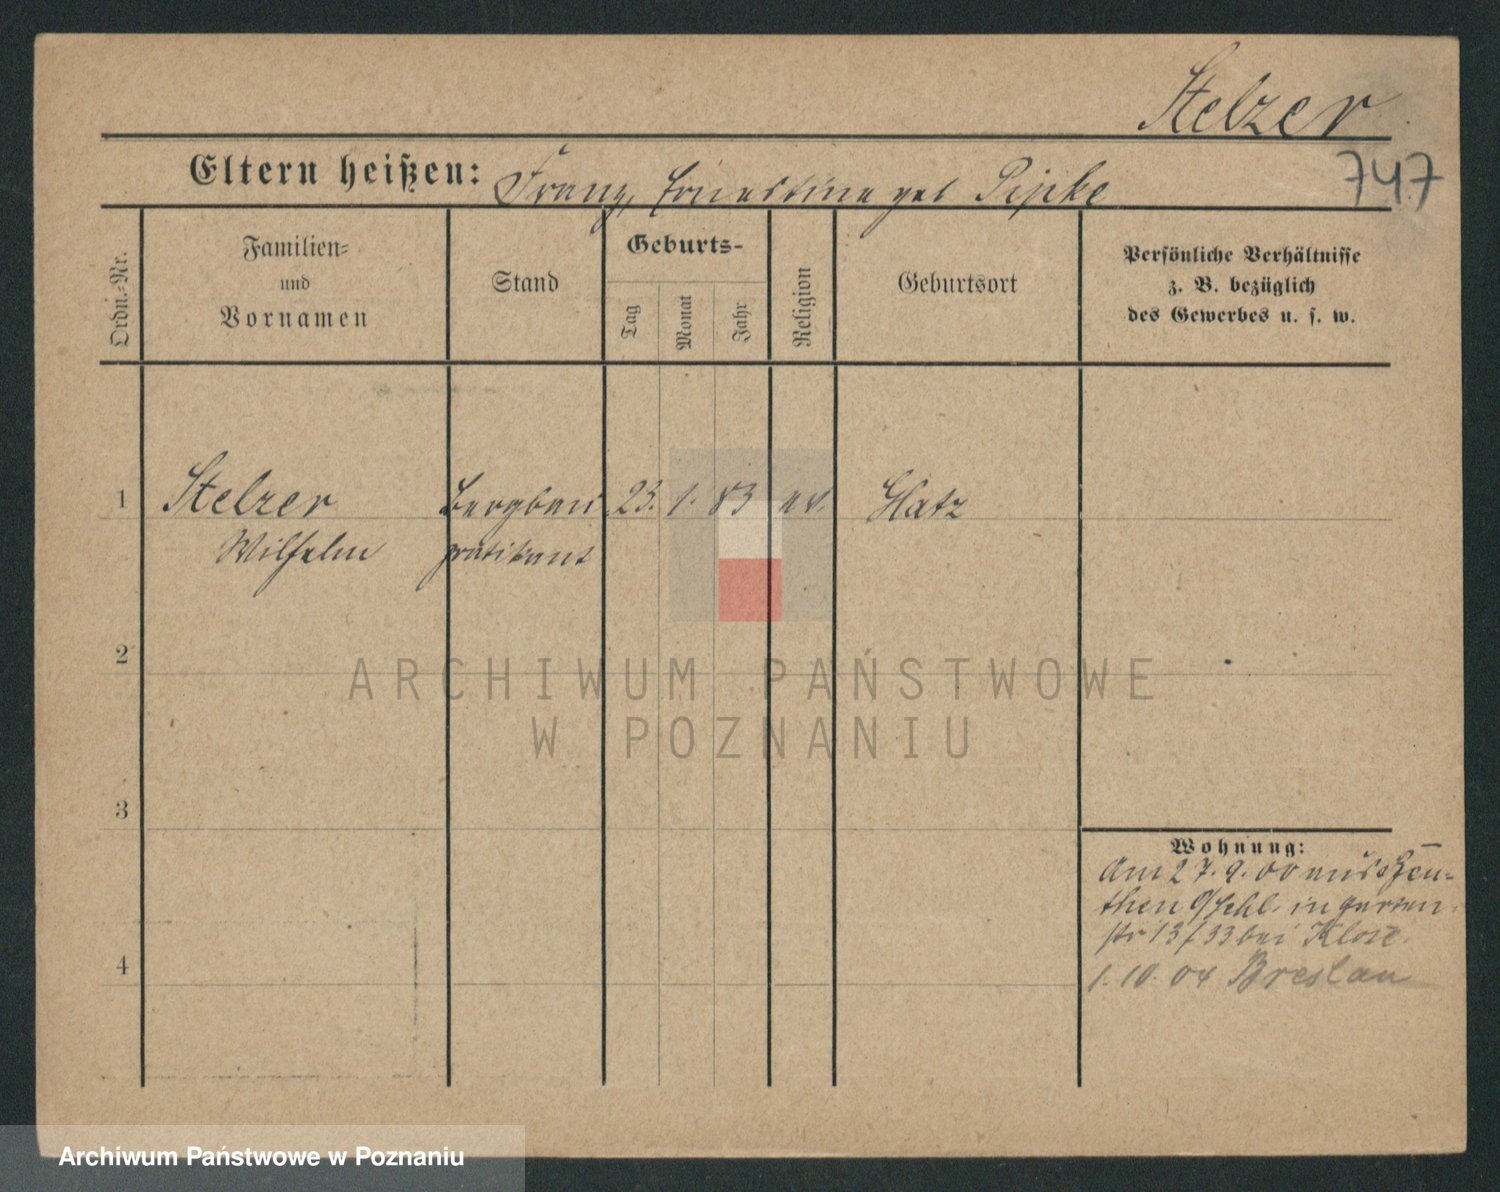 Stelzer
747
Eltern heißen: Franz, Ernestine geb
Ordn.-Nr.
Familien-
und
Vornamen
Stand
Geburts-
Tag
Monat
Jahr
Religion
Geburtsort
Persönliche Verhältnisse
z. B. bezüglich
des Gewerbes u. s. w.
1 Stelzer Bergbau 23. 1. 83 ev. Glatz
Wilhelm praktikant
2
ARCHIWUM PAŃSTWOWE
W POZNANIU
3
Wohnung:
Am 27.9.00 aus Beu-
then O/Schl. in Garten
str 13/33 bei Klose.
4
1.10.04 Breslau
Archiwum Państwowe w Poznaniu